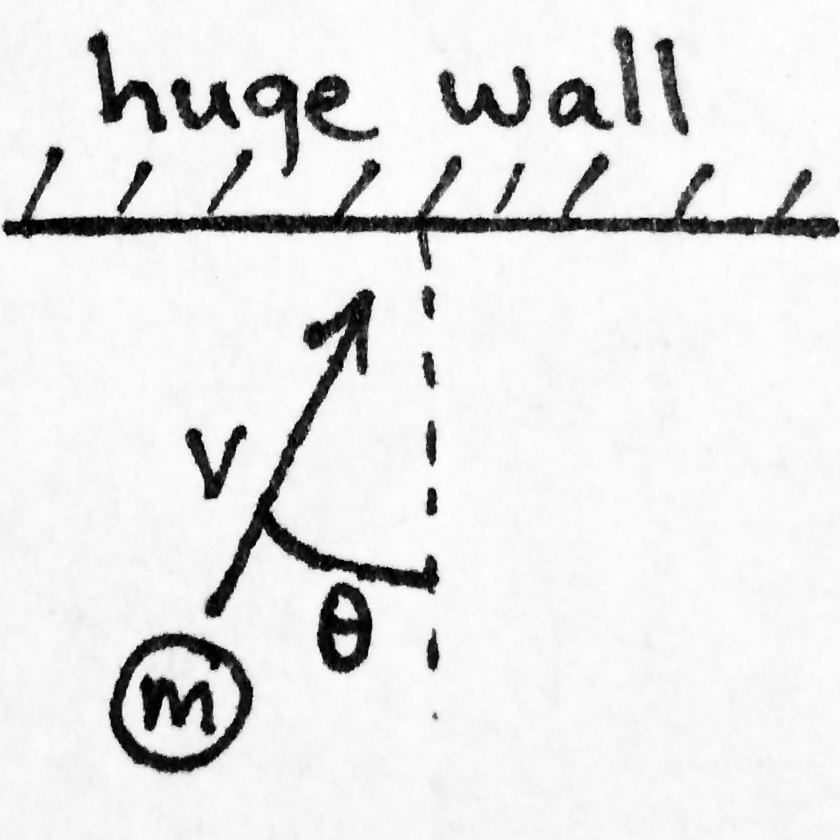 huge wall
v
θ
m